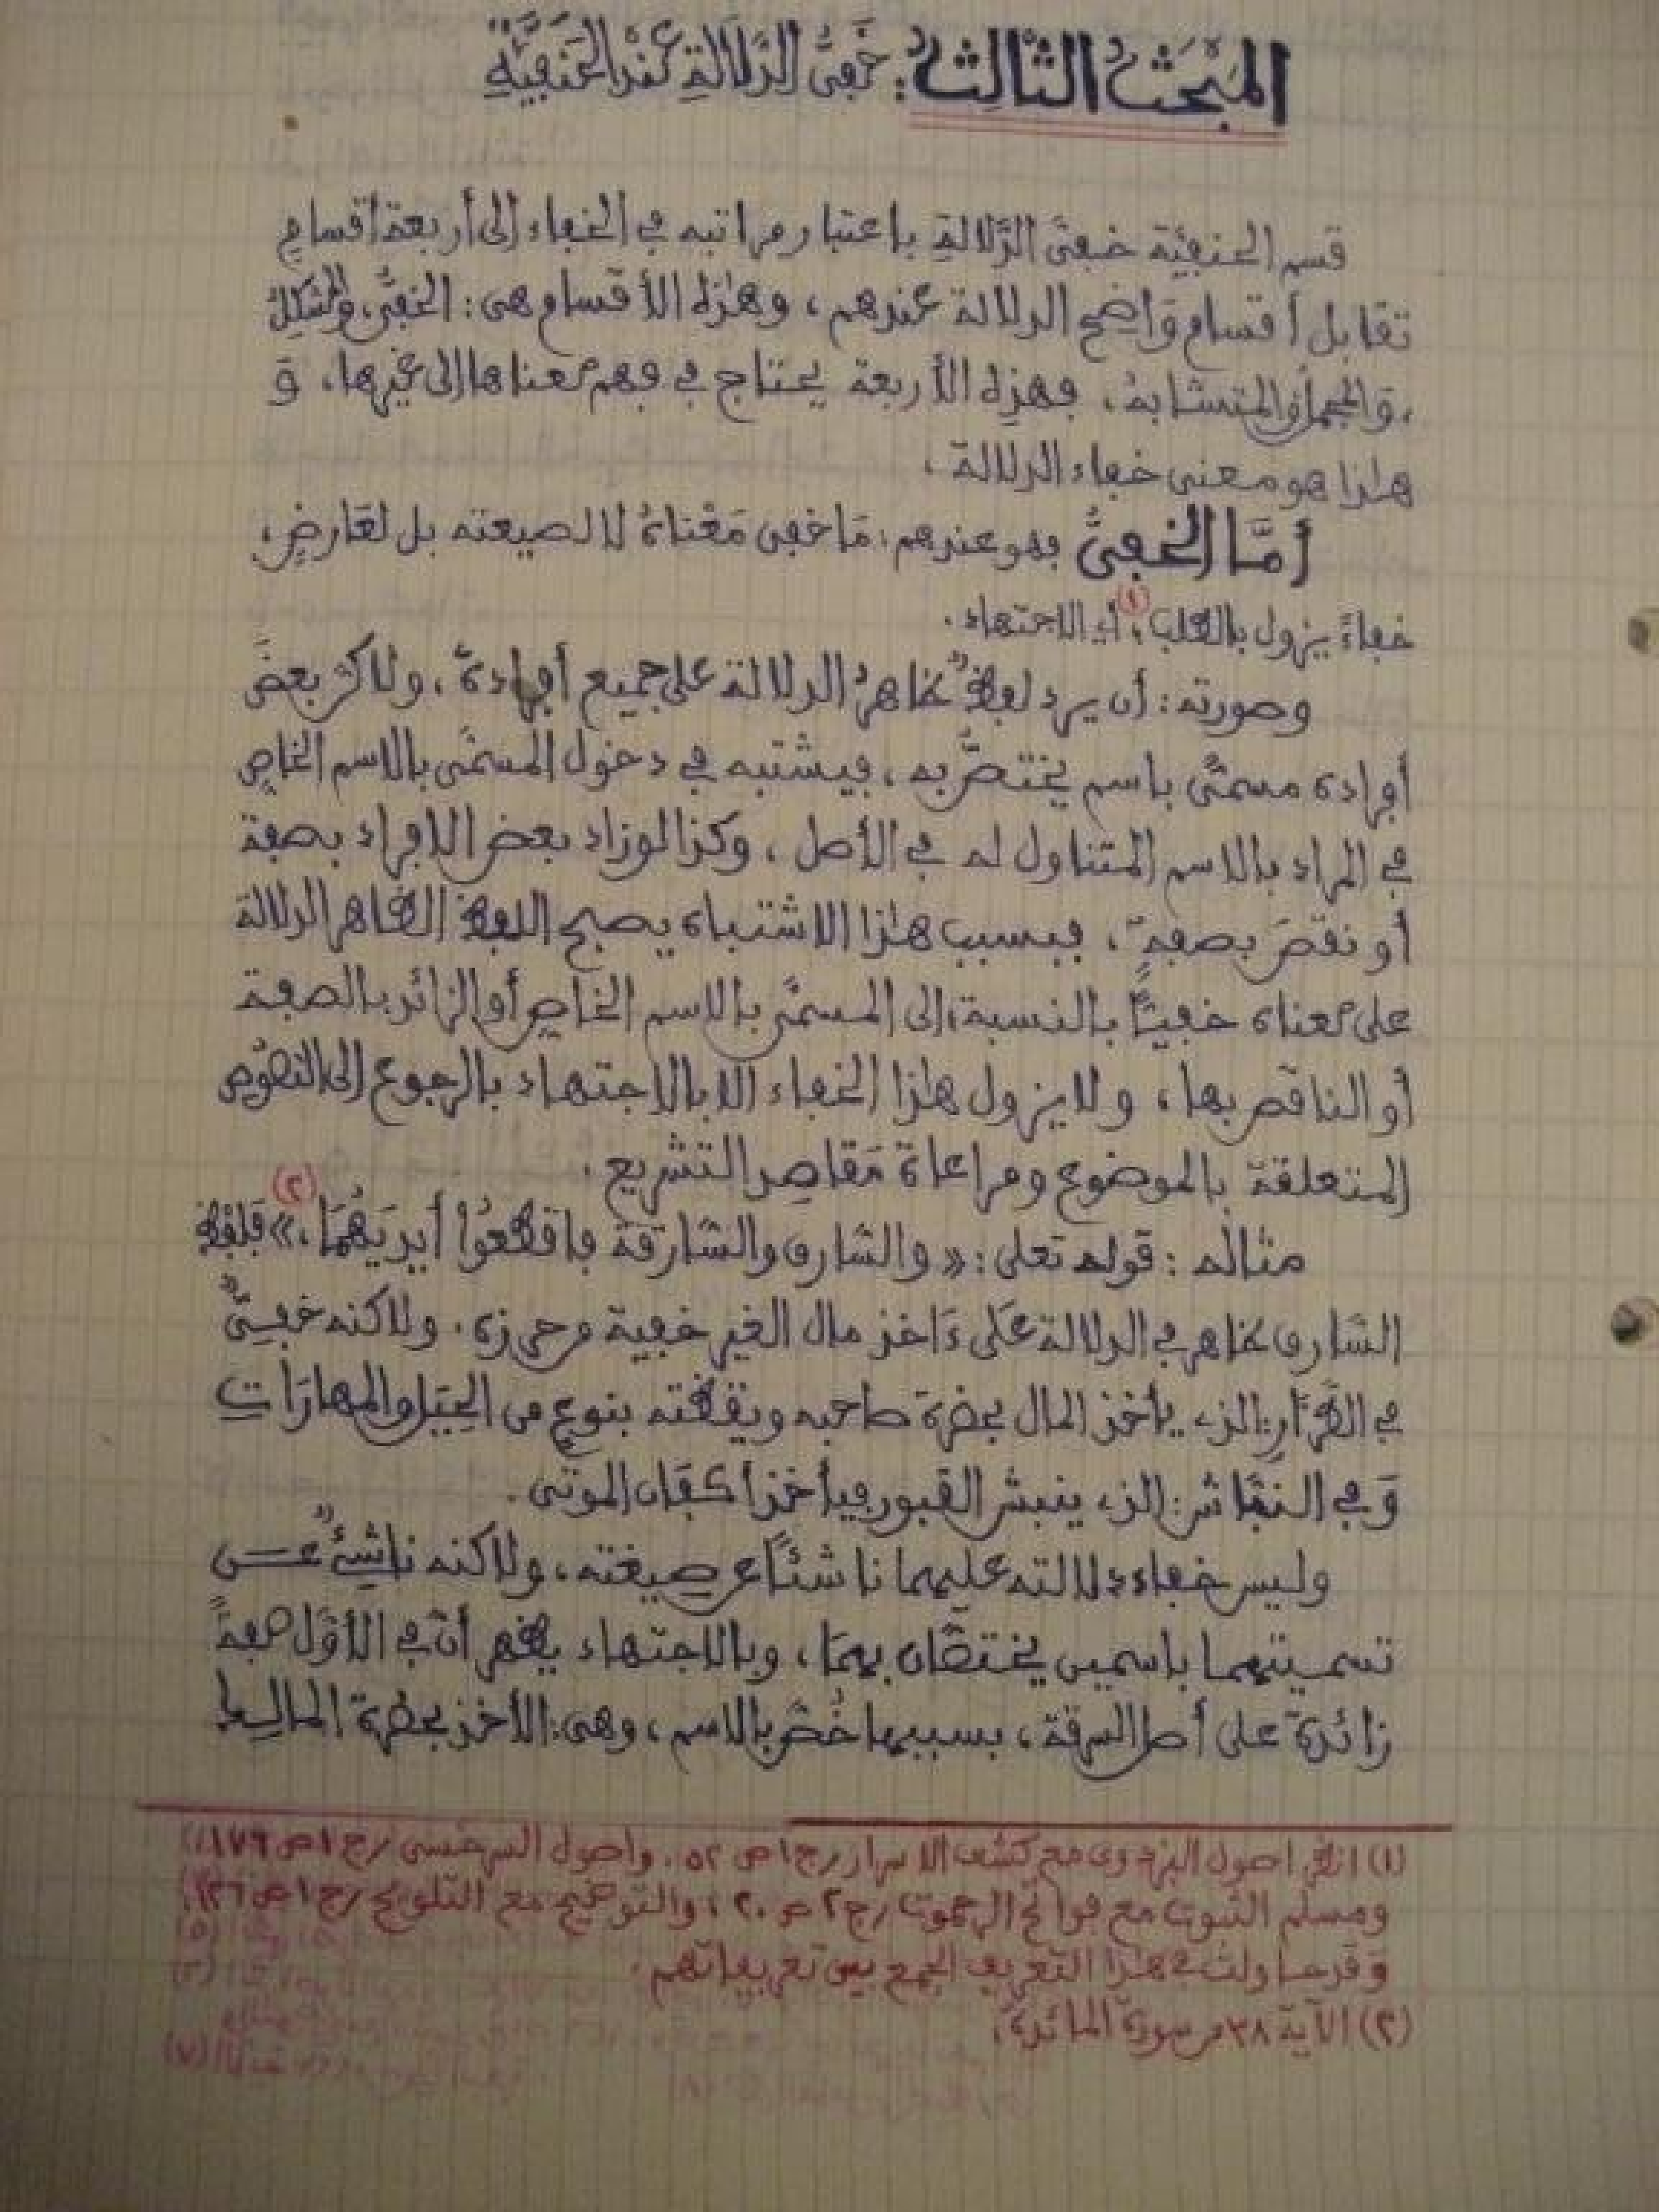 المَبْحَثُ الثَّالِثُ: خَفِىُّ الدَّلَالَةِ عِنْدَ الحَنَفِيَّةِ
قسم الحنفيَّة خفىَّ الدَّلالةِ باعتبار مراتبه في الخفاء إلى أربعة أقسامٍ
تقابل أقسام وَاضِحِ الدلالة عندهم، وهذه الأقسام هى: الخفىُّ، والمُشْكِلُ
، وَالمجملُ والمتشابهُ، فهذِه الأربعة يحتاج في فهم معناها إلى غيرها، وَ
هذا هو معنى خفاء الدلالة.
أمَّا الخفىُّ فهو عندهم: مَا خفِىَ مَعْناهُ لا لصيغته بل لعَارضٍ،
خفاءً يزول بالطلب،(١) أي الاجتهاد.
وصورته: أن يرد لفظٌ ظاهرُ الدلالة على جميع أفراده، ولاكنْ بعضُ
أفراده مسمًّى باسم يختصُّ به، فيشتبه في دخول المسمَّى بالاسم الخاصِ
في المراد بالاسم المتناول له في الأصل، وكذا لو زاد بعض الافراد بصفة
أو نقصَ بصفةٍ، فبسبب هذا الاشتباه يصبح اللفظ الظاهر الدلالة
على معناه خفيًّا بالنسبة إلى المسمَّى بالاسم الخاصِ أو الزائد بالصفة
أو الناقص بها، ولا يزول هذا الخفاء الا بالاجتهاد بالرجوع إلى النصُوص
المتعلقة بالموضوع ومراعاة مَقاصِد التشريع.
مثاله: قوله تعلى: «والسَّارق والسَّارقة فاقطعُوا أيديَهُمَا،»(٢) فلفظ
السَّارق ظاهر في الدلالة عَلَى ءَاخذ مال الغير خفية من حرزه. ولاكنه خفِىٌّ
في الطَّرَّارِ: الذي يأخذ المال بحضرة صاحبه ويقظته بنوعٍ من الحِيَل والمهارَاتِ
وَفي النبَّاش: الذي ينبش القبور فيأخذ أكفان الموتى.
وليس خفاء دلالته عليهما ناشئًا عن صِيغته، ولاكنه ناشِئٌ عن
تسميتهما باسمين يختصَّان بهمَا، وبالاجتهاد يظهر أنَّ في الأوَّل صفةً
زائدةً على أصل السرقة، بسببها خُصَّ بالاسم، وهى: الأخذ بحضرة المالِكِ
(١) انظر اصول البزدوى مع كشف الاسرار/ج١ص ٥٢. واصول السرخسى/ج١ص١٦٧،
ومسلم الثبوت مع فواتح الرحموت/ج٢ص٢٠، والتوضيح مع التلويح/ج١ص١٢٦
وَقد حاولتُ في هذا التعريف الجمع بين تعريفاتهم.
(٢) الآية ٣٨ من سورة المائدة.